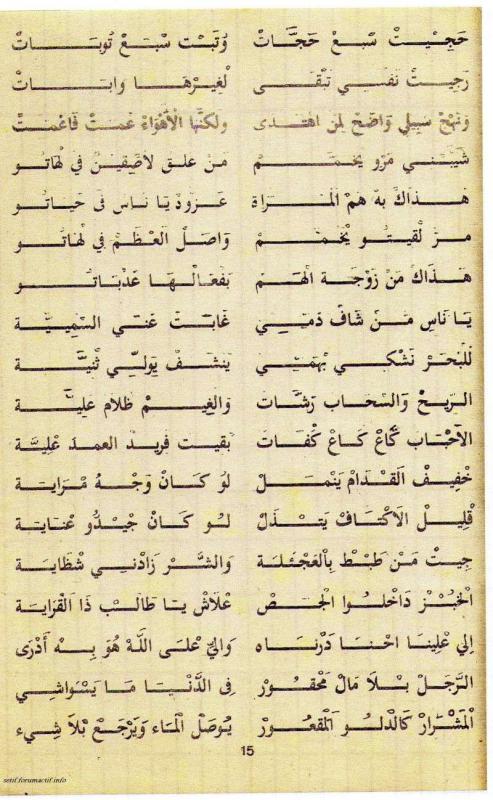 حَجِيتْ سْبَعْ حَجَّاتْ وُتَبْت سْبَعْ تُوبَاتْ
رَجِيتْ نَفْسِي تَبْقَى لْغِيرْهَا وابَاتْ
وَنَهْجْ سَبِيلِي وَاضَحْ لِمَن اهْتَدى ولَكِنَّهَا الأَهْوَاءُ عَمَتْ فَاعْمَتْ
شَيَّبْنِي مَرْو يخَمَّمْ مَنْ عَلَق لاَصْقِينْ فِي لْهَاتُو
هَذَاكْ بَهْ هَمْ الْمَرَاة عَزُوهْ يَا نَاس فِى حَيَاتُو
مَنْ لْقِيتُو يْخَمَّمْ وَاصَلْ الْعَظْمْ فِي لْهَاتُو
هَذَاكْ مَنْ زَوْجَةْ الْهَمْ بَفْعَالْهَا عَذْبَاتُو
يَا نَاسِ مَنْ شَافْ دَمْنِي غَابَتْ عَنِّي السْمِيَّة
لَلْبْحَرْ نَشْكِي بْهَمِّي يَنْشَفْ يْوَلِّي ثْنِيَّة
الرِيحْ وَالسْحَاب رَشَّاتْ وَالْغِيمْ ظْلَام عَلِيَّة
الأَحْبَابْ كَاعْ كَاعْ كْفَاتْ بْقيت فَرِيدْ العمدَ عْلِيَّة
خْفِيفْ الَقْدَامْ يَنْمَلْ لَوْ كَانْ وَجْهُ مْرَايَة
قْلِيلْ الاَكْتَافْ يَتْذَلْ لَو كَانْ جِيدُّو عْنَايَة
جِيتْ مَنْ طَبْطَ بِالْعَجْلَة وَالشَّرْ زَادْنِي شْظَايَة
الْخُبْزْ دَاخْلُوا الْجَصْ عْلَاشْ يَا طَالَبْ ذَا الْقْرَايَة
اِلي عْلِينَا احْنَا دَرْنَاه وَالِيْ عْلَى اللَّهْ هُوَ بِهْ أَدْرَى
الرَّجَلْ بْلَا مَالْ مَحْقُورْ فِى الدَّنْيَا مَا يَسْوَاشِي
الْمَشْرَارْ كَالدَلُو الْمَقْعُورْ يُوصَلْ الْمَاء وَيَرْجَعْ بْلاَ شِيء
15
setif.forumactif.info